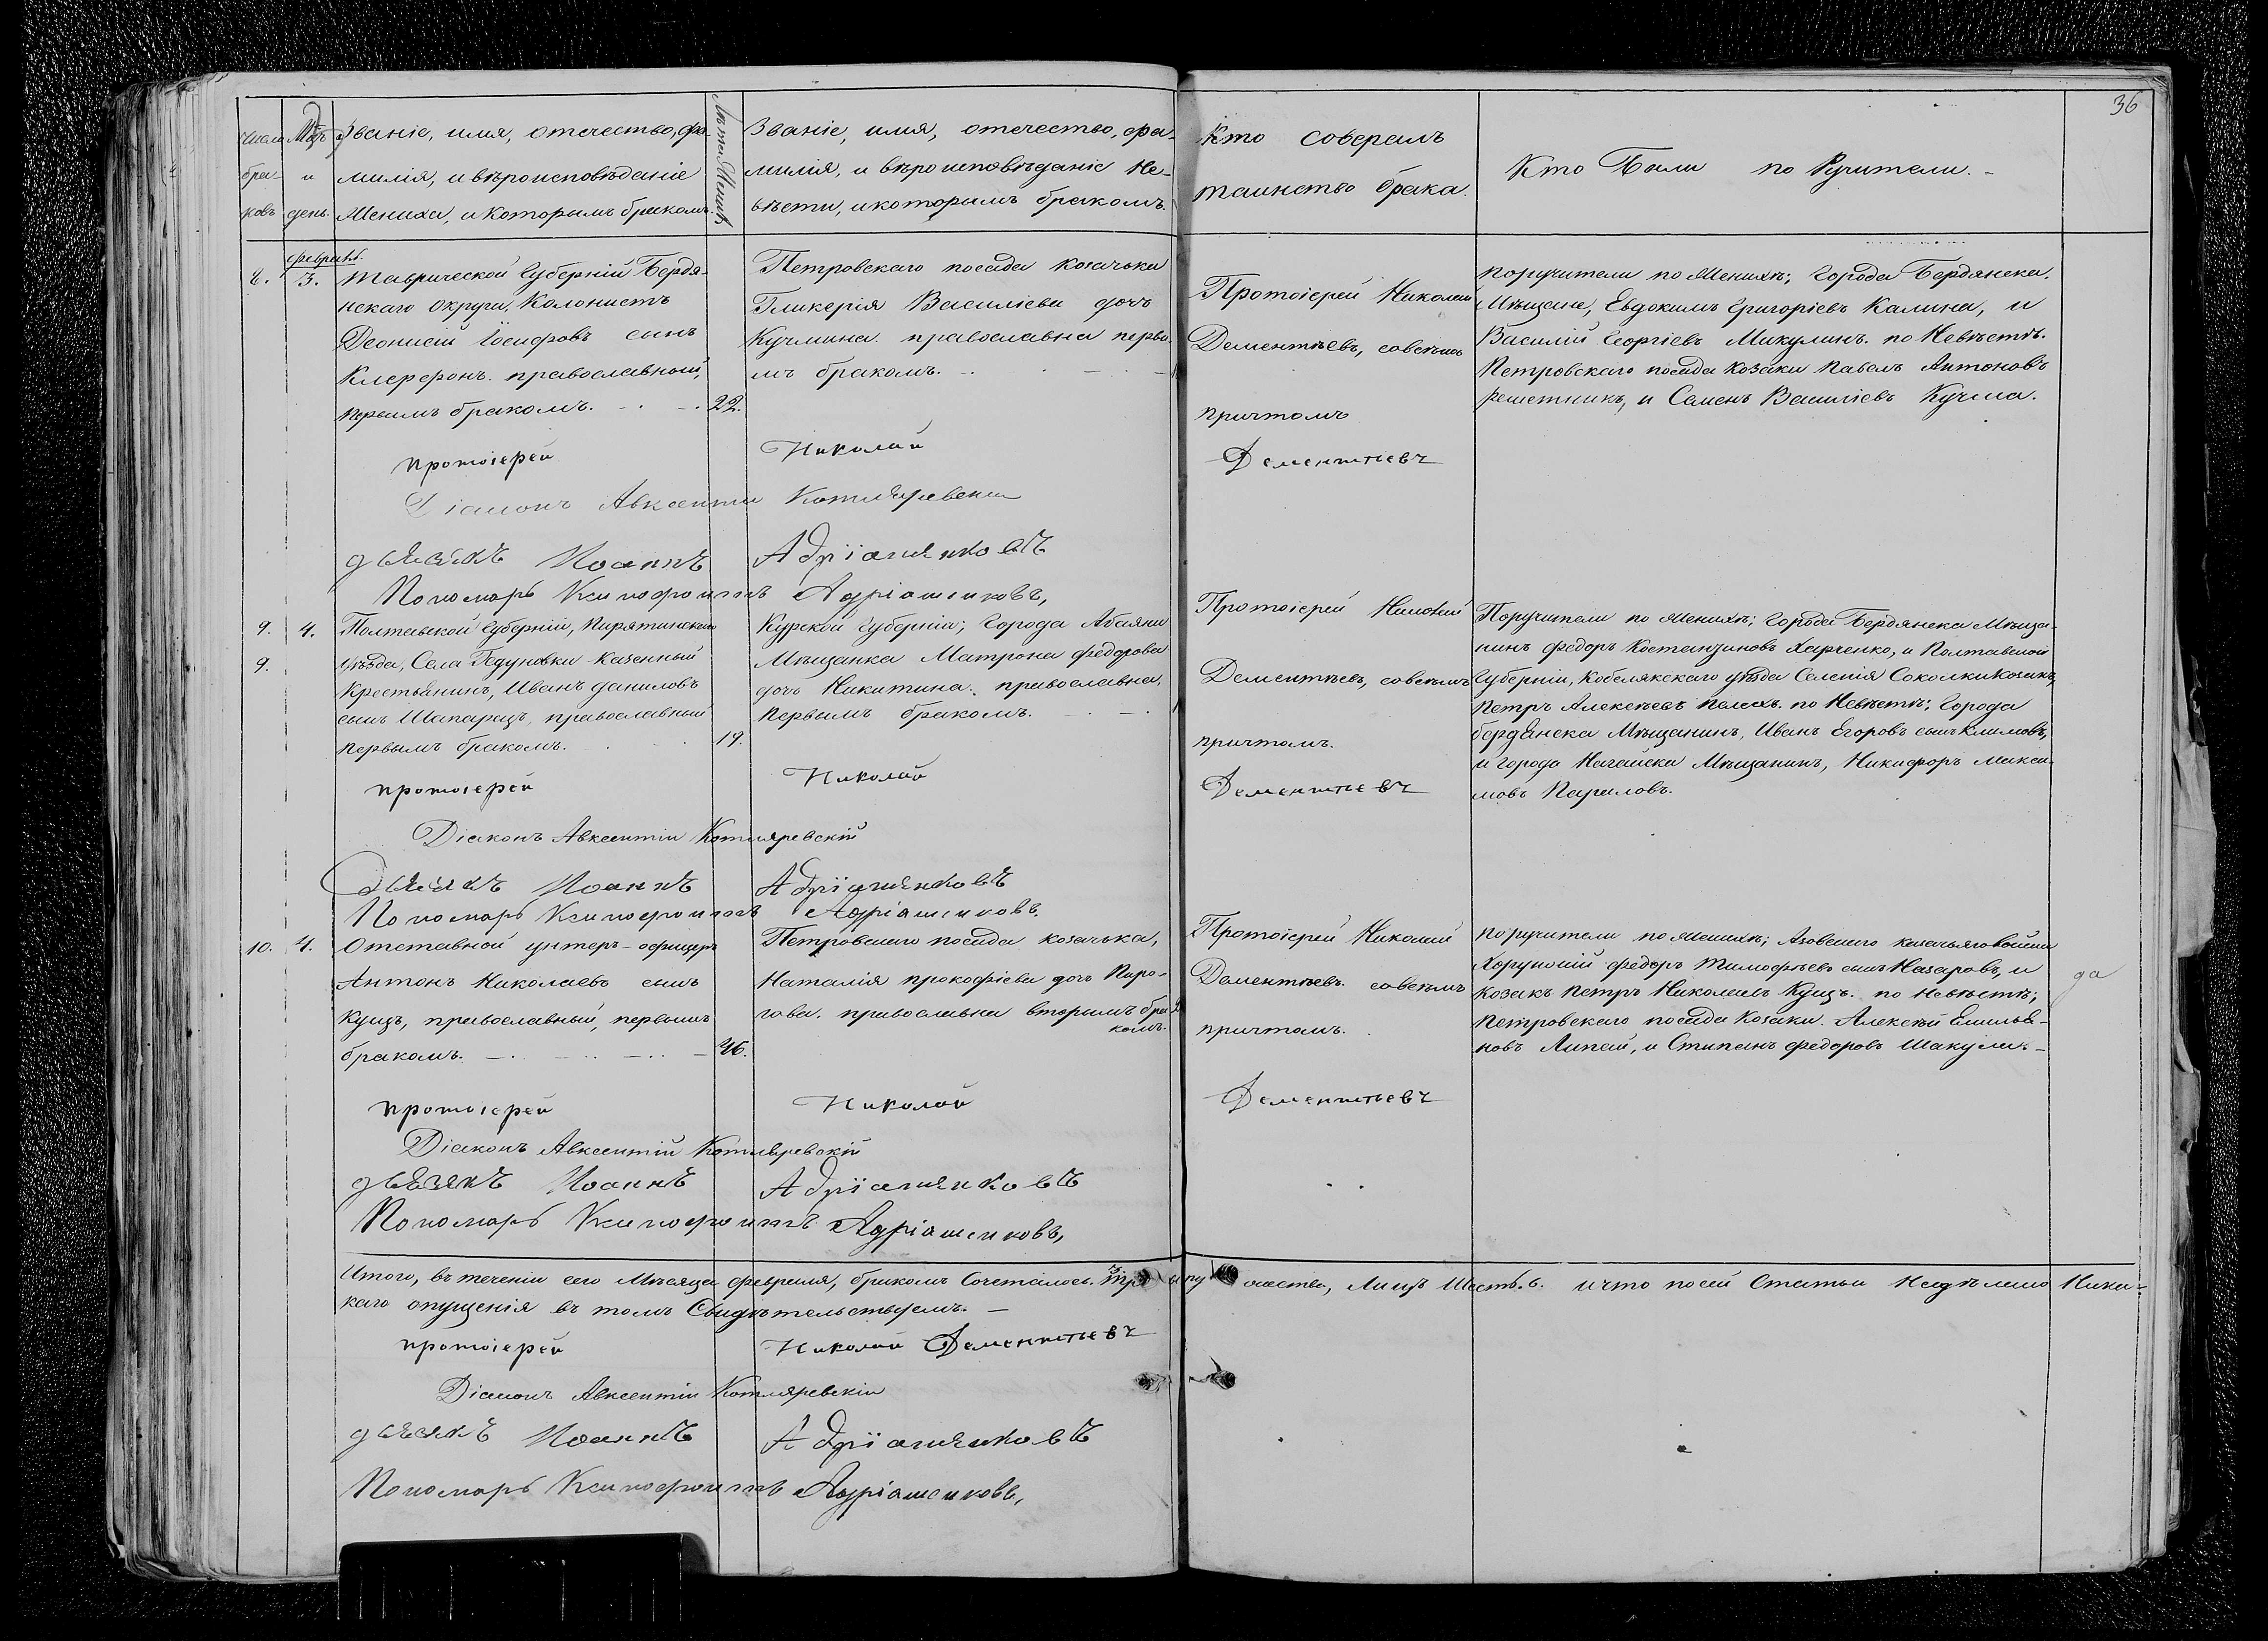 36
Число Мцъ Званіе, имя, отечество, фа-
бра- и милія, и вѣроисповѣданіе
ковъ день. Жениха, и которымъ бракомъ.
Лѣта Жениха
Званіе, имя, отечество, фа-
милія, и вѣроисповѣданіе Не-
вѣсти, и которымъ бракомъ.
Кто соверсалъ
таинство брака.
Кто Были по Ручители. -
февраль
8. 3. Таврической Губерніи Бердя-
нскаго округа, Колонистъ
Деонисій Іосифовъ сынъ
Клерфонъ. православный,
первымъ бракомъ. 22.
Петровскаго посада козачька
Гликерія Василіева дочь
Кучмина. православна первы
мъ бракомъ.
Протоіерей Николай
Дементѣевъ, совсѣмъ
причтомъ
поручители по Женихѣ; Города Бердянска.
Мѣщане, Евдокимъ Григоріевъ Калина, и
Василій Георгіевъ Микулинъ. по Невѣстѣ.
Петровскаго посада Козаки Павелъ Антоновъ
решетникъ, и Семенъ Василіевъ Кучма.
протоіерей Николай Дементьевъ
Діаконъ Авксентій Котляревскій
дьячокъ Иоаннъ Адріяшенковъ
Пономарь Ксинофонтъ Адріашенковъ,
9. 4. Полтавской Губерніи, Пирятинскаго
9. Уѣзда, Села Гедуновки казенный
Крестьянинъ, Иванъ даниловъ
сынъ Шапарецъ, православный
первымъ бракомъ. 19.
Курской Губерніи; Города Абаяни
Мѣщанка Матрона федорова
дочь Никитина. православна,
первымъ бракомъ.
Протоіерей Николай
Дементѣевъ, совсѣмъ
причтомъ.
Поручители по Женихѣ; Города Бердянска Мѣща-
нинъ федоръ Костанзиновъ Харченко, и Полтавской
Губерніи, Кобелякского уѣзда Селенія Соколки Козакъ,
Петръ Алексѣевъ Полехъ. по Невѣстѣ; Города
бердянска Мѣщанинъ, Иванъ Егоровъ сынъ Климовъ,
и города Нагайска Мѣщанинъ, Никифоръ макси-
мовъ
протоіерей Николай Дементьевъ
Діаконъ Авксентій Котляревскій
дьячокъ Иоаннъ Адріяшенковъ
Пономарь Ксинофонтъ Адріашенковъ.
10. 4. Отставной унтеръ-офицеръ
Антонъ Николаевъ сынъ
Куцъ, православный, первымъ
бракомъ. 46.
Петровскаго посада козачька,
Наталія прокофіева дочь Пиро-
гова. православна вторымъ бра
комъ.
Протоіерей Николай
Дементѣевъ. совсѣмъ
причтомъ.
поручители по Женихѣ; Азовскаго козачьяго войска
Хорунжій федоръ Тимофѣевъ сынъ Назаровъ, и
Козакъ Петръ Николаевъ Куцъ. по невѣстѣ;
Петровскаго посада Козаки. Алексѣй Емилья-
новъ Липай, и Стипанъ федоровъ Шакула. -
да
протоіерей Николай Дементьевъ
Діаконъ Авксентій Котляревскій
дьячокъ Иоаннъ Адріяшенковъ
Пономарь Ксинофонтъ Адріашенковъ,
Итого, въ теченіи сего Мѣсяца февраля, бракомъ Сочеталось. 3. три супружества, Лицъ Шесть. 6. и что посей Статьи Недѣлано Ника-
каго опущенія въ томъ Свидѣтельствуемъ. -
протоіерей Николай Дементьевъ
Діаконъ Авксентій Котляревскій
дьячокъ Иоаннъ Адріяшенковъ
Пономарь Ксинофонтъ Адріашенковъ,